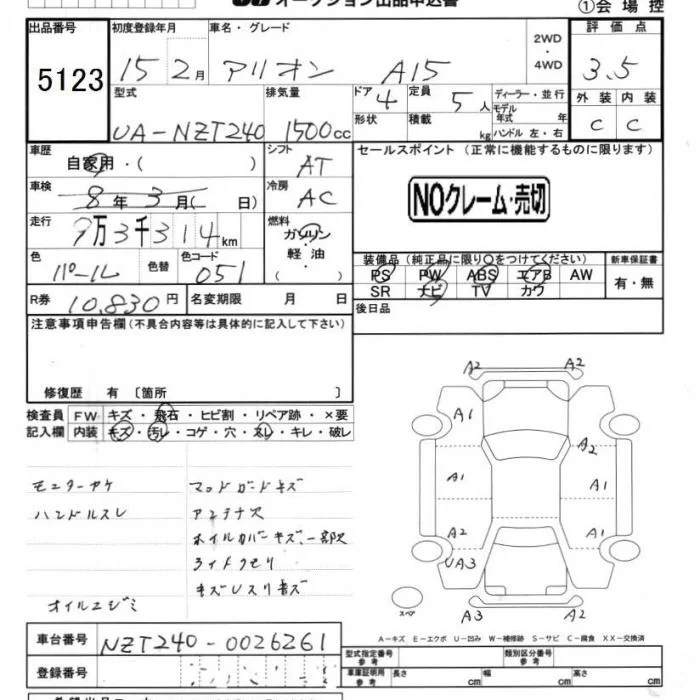 オークション出品申込書
①会場控
出品番号 初度登録年月 車名・グレード 評価点
5123 15 2月 アリオン A15 2WD・4WD 3.5
型式 排気量 ドア 4 定員 5人 ディーラー・並行 外装 内装
UA-NZT240 1500cc 形状 積載 kg モデル年式 年 ハンドル 左・右 C C
車歴 自家用・( ) シフト AT セールスポイント (正常に機能するものに限ります)
車検 8年 3月( 日) 冷房 AC NOクレーム・売切
走行 9万3千314km 燃料 ガソリン・軽油
色 パール 色替 色コード 051
装備品 (純正品に限り○をつけてください) 新車保証書
PS PW ABS エアB AW 有・無
SR ナビ TV カワ
R券 10,830円 名変期限 月 日 後日品
注意事項申告欄(不具合内容等は具体的に記入して下さい)
修復歴 有 〔箇所 〕
検査員 FW キズ・飛石・ヒビ割・リペア跡・×要
記入欄 内装 キズ・汚レ・コゲ・穴・スレ・キレ・破レ
モニターヤケ マッドガードキズ
ハンドルスレ アンテナ欠
ホイルカバーキズ、一部欠
ライトクモリ
キズU スリキズ
オイルニジミ
A2 A2
A1
A1 A1
A2 A1
UA3
A3 A2
スペア
A-キズ E-エクボ U-凹み W-補修跡 S-サビ C-腐食 XX-交換済
車台番号 NZT240-0026261 型式指定番号 参考 類別区分番号 参考
登録番号 車庫証明用 参考 長さ cm 幅 cm 高さ cm